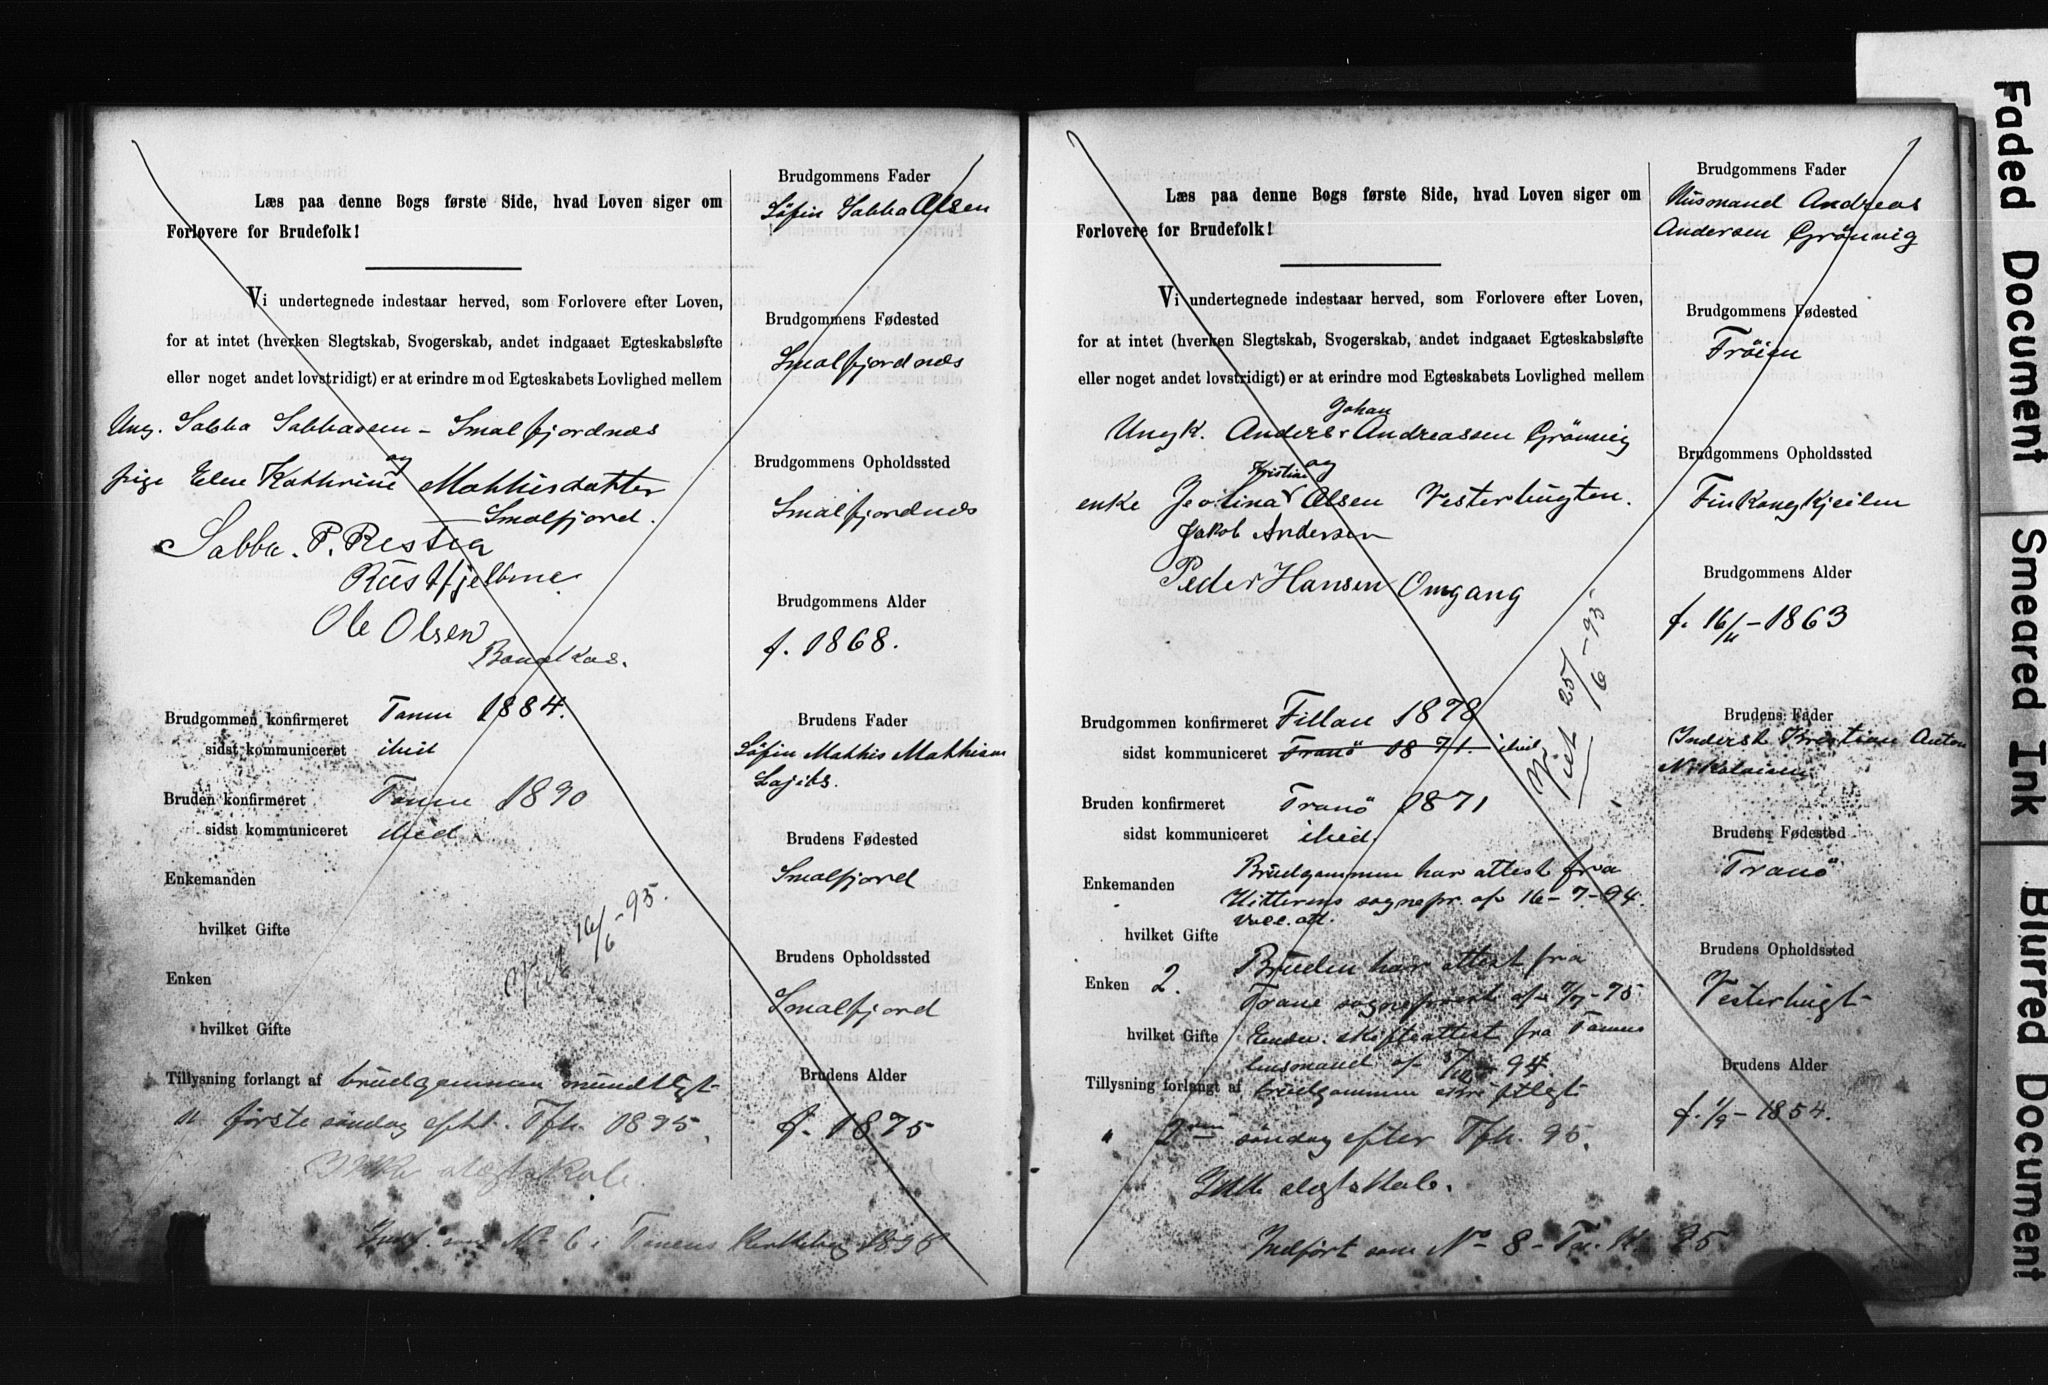 Læs paa denne Bogs første Side, hvad Loven siger om
Forlovere for Brudefolk!
Vi undertegnede indestaar herved, som Forlovere efter Loven,
for at intet (hverken Slegtskab, Svogerskab, andet indgaaet Egteskabsløfte
eller noget andet lovstridigt) er at erindre mod Egteskabets Lovlighed mellem
Ung. Sabba Sabbasen - Smalfjordnæs
og
pige Elen Kathrine Mathisdatter
Smalfjord.
Sabba. P.
Rustfjelbme.
Ole Olsen
Bonakas.
Brudgommen konfirmeret Tanen 1884.
sidst kommuniceret ibid
Bruden konfirmeret Tanen 1890
sidst kommuniceret ibid.
Enkemanden
hvilket Gifte
Viet 16/6-95.
Enken
hvilket Gifte
Tillysning forlangt af brudgommen mundtligt
første søndag efter Tfh. 1895.
Ikke slegtskab.
No 6 i Tanens 1895
Brudgommens Fader
Søfin Sabba Olsen
Brudgommens Fødested
Smalfjordnæs
Brudgommens Opholdssted
Smalfjordnæs
Brudgommens Alder
f. 1868.
Brudens Fader
Søfin Mathis Mathisen
Brudens Fødested
Smalfjord
Brudens Opholdssted
Smalfjord
Brudens Alder
f. 1875
Læs paa denne Bogs første Side, hvad Loven siger om
Forlovere for Brudefolk!
Vi undertegnede indestaar herved, som Forlovere efter Loven,
for at intet (hverken Slegtskab, Svogerskab, andet indgaaet Egteskabsløfte
eller noget andet lovstridigt) er at erindre mod Egteskabets Lovlighed mellem
Johan
Ungk. Anders Andreassen Grönvig
Kristine og
enke Olsen Vesterbugten.
Jakob Andersen
Peder Hansen Omgang
Viet 25/6-95
Brudgommen konfirmeret Fillan 1878
sidst kommuniceret Tranö 1871. ibid.
Bruden konfirmeret Tranö 1871
sidst kommuniceret ibid.
Enkemanden Brudgommen har attest fra
Hitterens sognepr. af 16-7-94.
hvilket Gifte
Bruden har attest fra
Enken 2. sogneprest af
hvilket Gifte Enken skifteattest fra Tanens
lensmand af 94
Tillysning forlangt af brudgommen skriftligt
" 2den søndag efter Tfh. 95.
Ikke slegtskab.
Indfört som No 8 - Tn. K. 95.
Brudgommens Fader
Husmand Andreas
Andersen Grönvig
Brudgommens Fødested
Fröien
Brudgommens Opholdssted
Finkongkjeilen
Brudgommens Alder
f. 16/11-1863
Brudens Fader
Inderst Kristian Anton
Nikolaisen
Brudens Fødested
Tranö
Brudens Opholdssted
Vesterbugt
Brudens Alder
f. 1/9-1854.
Faded Document
Smeared Ink
Blurred Document